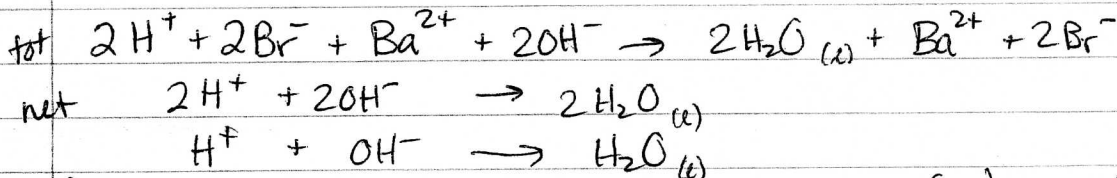 tot 2H⁺ + 2Br⁻ + Ba²⁺ + 2OH⁻ → 2H₂O (l) + Ba²⁺ + 2Br⁻
net 2H⁺ + 2OH⁻ → 2H₂O (l)
H⁺ + OH⁻ → H₂O (l)